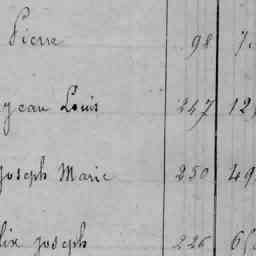 Pierre 98
jean Louis 247
joseph Marie 250
joseph 226